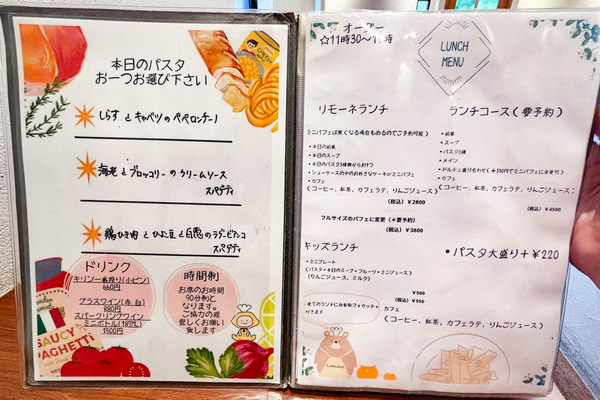 本日のパスタ
お一つお選び下さい
しらすとキャベツのペペロンチーノ
海老とブロッコリーのクリームソース
スパゲティ
鶏ひき肉とひよこ豆と白
のラグービアンコ
スパゲティ
ドリンク
キリン一番搾り(小ビン)
660円
グラスワイン(赤 白)
880円
スパークリングワイン
ミニボトル(187ML)
1500円
時間制
お席のお時間
90分制と
なります。
ご協力の程
宜しくお願い
致します
SAUCY
SPAGHETTI
オーダー
☆11時30〜
LUNCH
MENU
リモーネランチ
ミニパフェは無くなる場合もあるのでご予約可能)
・本日の前菜
・本日のスープ
・本日のパスタ3種類からお1つ
・ショーケースの中のお好きなケーキorミニパフェ
・カフェ
(コーヒー、紅茶、カフェラテ、りんごジュース)
(税込) ¥2800
フルサイズのパフェに変更(*要予約)
(税込) ¥3800
キッズランチ
・ミニプレート
(パスタ・本日のスープ・フルーツ・ミニジュース)
(りんごジュース、ミルク)
¥500
(税込) ¥550
全てのランチに自家製フォカッチャ
付きます
カフェ
(コーヒー、紅茶、カフェラテ、りんごジュース)
Limone
ランチコース(要予約)
・前菜
・スープ
・パスタ2種
・メイン
・ドルチェ盛り合わせ(+550円でミニパフェに変更可)
・カフェ
(コーヒー、紅茶、カフェラテ、りんごジュース)
(税込) ¥4500
・パスタ大盛り+¥220